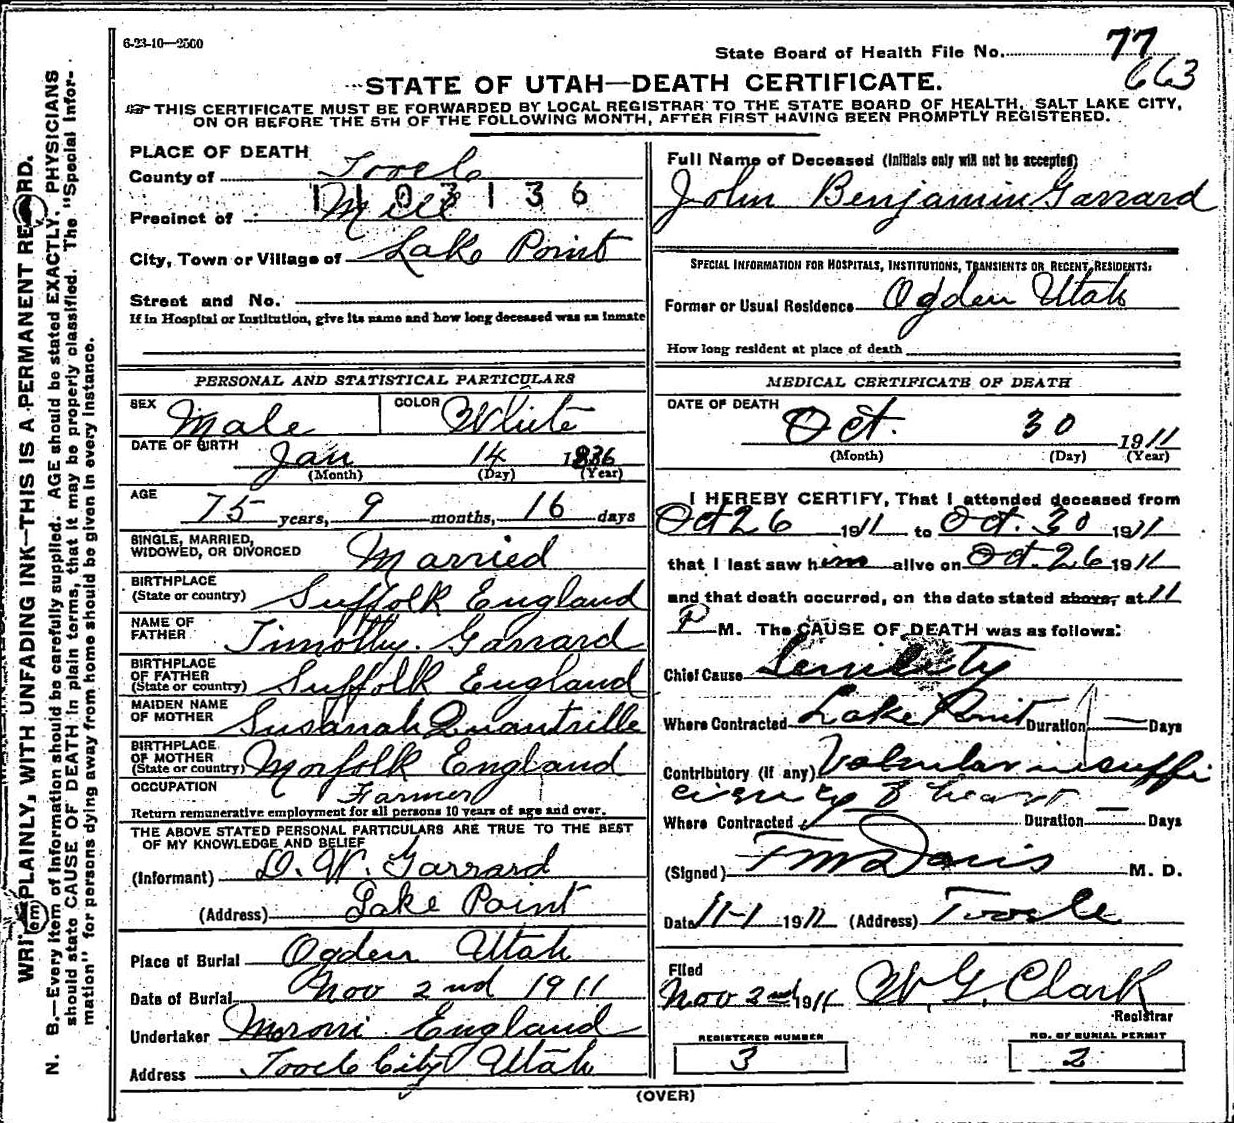 6-23-10—2500
State Board of Health File No. 77
663
STATE OF UTAH—DEATH CERTIFICATE.
☞ THIS CERTIFICATE MUST BE FORWARDED BY LOCAL REGISTRAR TO THE STATE BOARD OF HEALTH, SALT LAKE CITY,
ON OR BEFORE THE 5TH OF THE FOLLOWING MONTH, AFTER FIRST HAVING BEEN PROMPTLY REGISTERED.
WRITE PLAINLY, WITH UNFADING INK—THIS IS A PERMANENT RECORD.
N. B.—Every item of information should be carefully supplied. AGE should be stated EXACTLY. PHYSICIANS
should state CAUSE OF DEATH in plain terms, that it may be properly classified. The "Special Infor-
mation" for persons dying away from home should be given in every instance.
PLACE OF DEATH
County of Tooele
1103136
Precinct of Mill
City, Town or Village of Lake Point
Street and No.
If in Hospital or Institution, give its name and how long deceased was an inmate
PERSONAL AND STATISTICAL PARTICULARS
SEX Male COLOR White
DATE OF BIRTH Jan 14 1836
(Month) (Day) (Year)
AGE 75 years, 9 months, 16 days
SINGLE, MARRIED,
WIDOWED, OR DIVORCED Married
BIRTHPLACE
(State or country) Suffolk England
NAME OF
FATHER Timothy Garrard
BIRTHPLACE
OF FATHER
(State or country) Suffolk England
MAIDEN NAME
OF MOTHER Susanah Quantrille
BIRTHPLACE
OF MOTHER
(State or country) Norfolk England
OCCUPATION Farmer
Return remunerative employment for all persons 10 years of age and over.
THE ABOVE STATED PERSONAL PARTICULARS ARE TRUE TO THE BEST
OF MY KNOWLEDGE AND BELIEF
(Informant) D. W. Garrard
(Address) Lake Point
Place of Burial Ogden Utah
Date of Burial Nov 2nd 1911
Undertaker Moroni England
Address Tooele City Utah
Full Name of Deceased (Initials only will not be accepted)
John Benjamin Garrard
SPECIAL INFORMATION FOR HOSPITALS, INSTITUTIONS, TRANSIENTS OR RECENT RESIDENTS.
Former or Usual Residence Ogden Utah
How long resident at place of death
MEDICAL CERTIFICATE OF DEATH
DATE OF DEATH Oct. 30 1911
(Month) (Day) (Year)
I HEREBY CERTIFY, That I attended deceased from
Oct 26 1911 to Oct. 30 1911
that I last saw him alive on Oct. 26 1911
and that death occurred, on the date stated above, at 11
P M. The CAUSE OF DEATH was as follows:
Chief Cause Senility
Where Contracted Lake Point Duration — Days
Contributory (if any) Valvular insuffi
ciency of heart
Where Contracted Duration — Days
(Signed) F M Davis M. D.
Date 11-1 1911 (Address) Tooele
Filed
Nov 2nd 1911 W. G. Clark
Registrar
REGISTERED NUMBER
3
NO. OF BURIAL PERMIT
2
(OVER)